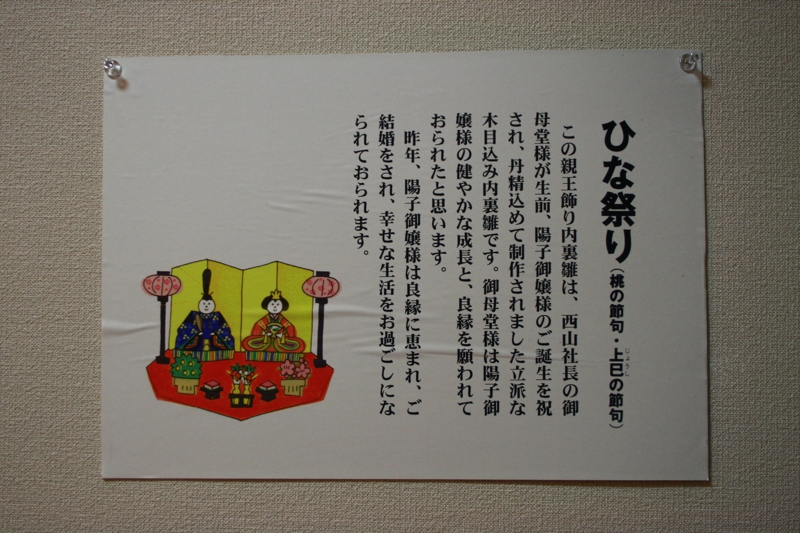 ひな祭り（桃の節句・上巳の節句）
じょうし
この親王飾り内裏雛は、西山社長の御
母堂様が生前、陽子御嬢様のご誕生を祝
され、丹精込めて制作されました立派な
木目込み内裏雛です。御母堂様は陽子御
嬢様の健やかな成長と、良縁を願われて
おられたと思います。
昨年、陽子御嬢様は良縁に恵まれ、ご
結婚をされ、幸せな生活をお過ごしにな
られております。